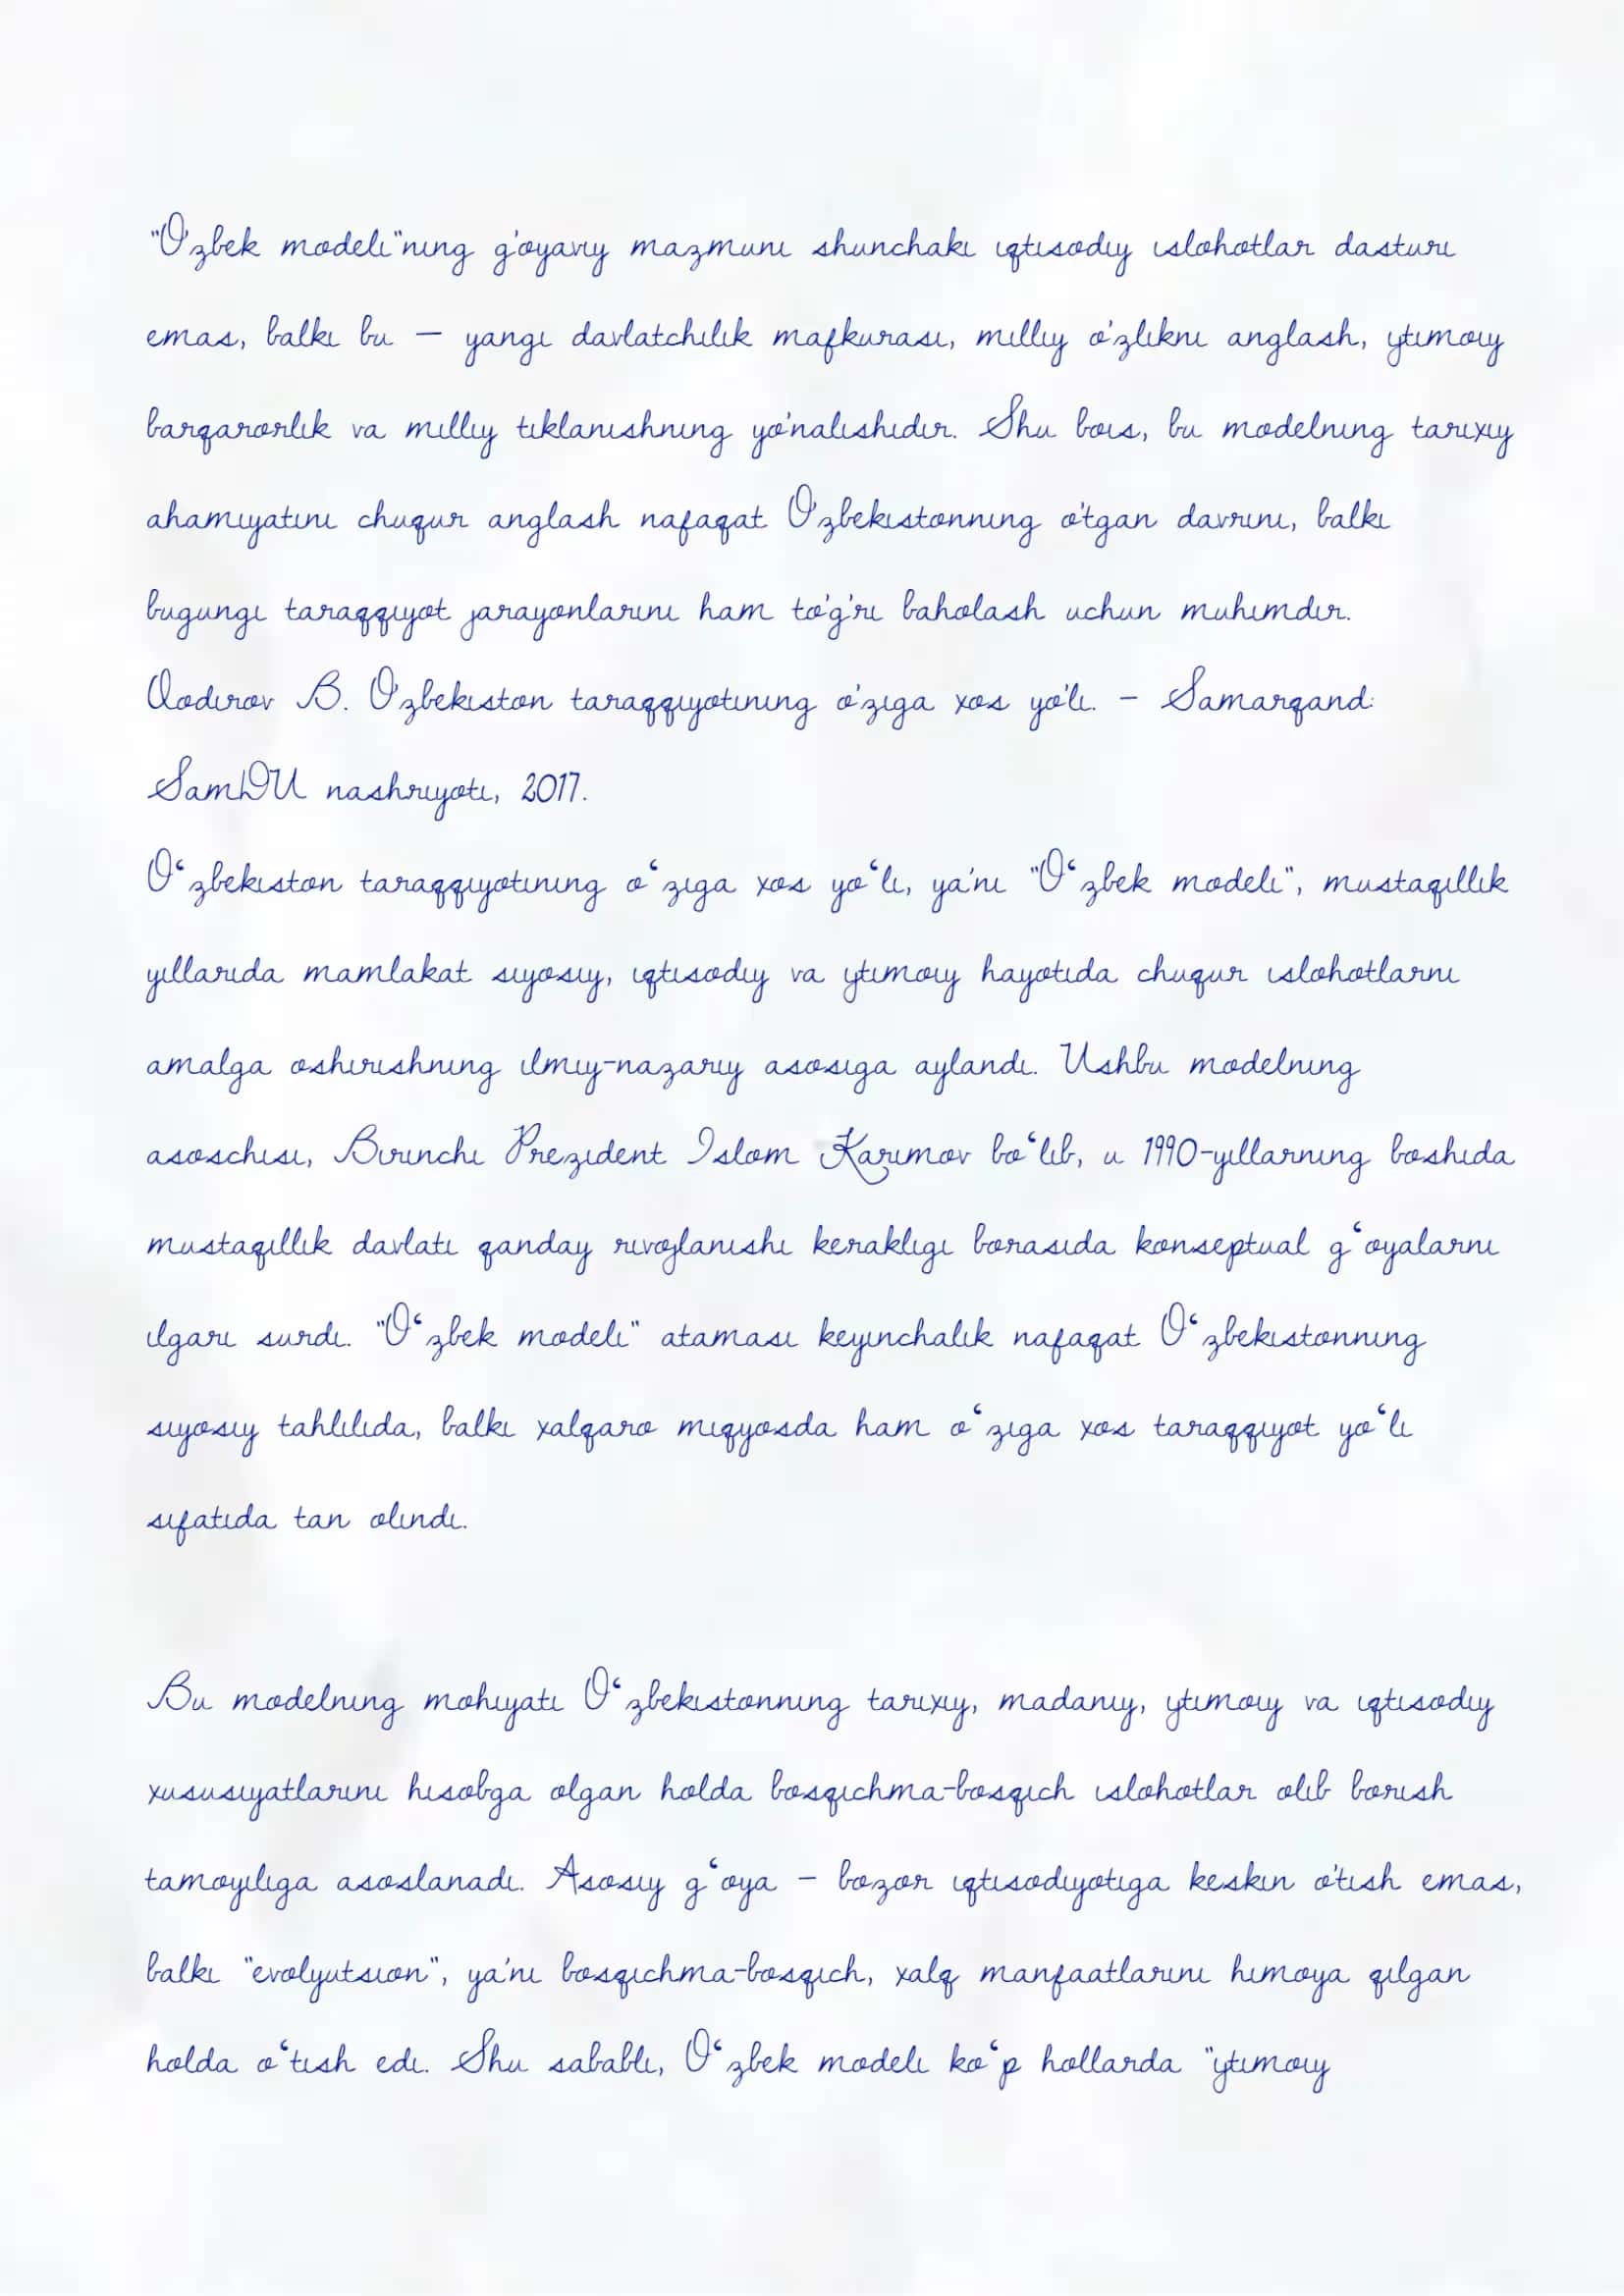 "O'zbek modeli"ning g'oyaviy mazmuni shunchaki iqtisodiy islohotlar dasturi
emas, balki bu — yangi davlatchilik mafkurasi, milliy o'zlikni anglash, ijtimoiy
barqarorlik va milliy tiklanishning yo'nalishidir. Shu bois, bu modelning tarixiy
ahamiyatini chuqur anglash nafaqat O'zbekistonning o'tgan davrini, balki
bugungi taraqqiyot jarayonlarini ham to'g'ri baholash uchun muhimdir.
Qodirov B. O'zbekiston taraqqiyotining o'ziga xos yo'li. – Samarqand:
SamDU nashriyoti, 2017.
Oʻzbekiston taraqqiyotining oʻziga xos yoʻli, ya'ni "Oʻzbek modeli", mustaqillik
yillarida mamlakat siyosiy, iqtisodiy va ijtimoiy hayotida chuqur islohotlarni
amalga oshirishning ilmiy-nazariy asosiga aylandi. Ushbu modelning
asoschisi, Birinchi Prezident Islom Karimov boʻlib, u 1990-yillarning boshida
mustaqillik davlati qanday rivojlanishi kerakligi borasida konseptual gʻoyalarni
ilgari surdi. "Oʻzbek modeli" atamasi keyinchalik nafaqat Oʻzbekistonning
siyosiy tahlilida, balki xalqaro miqyosda ham oʻziga xos taraqqiyot yoʻli
sifatida tan olindi.
Bu modelning mohiyati Oʻzbekistonning tarixiy, madaniy, ijtimoiy va iqtisodiy
xususiyatlarini hisobga olgan holda bosqichma-bosqich islohotlar olib borish
tamoyiliga asoslanadi. Asosiy gʻoya – bozor iqtisodiyotiga keskin o'tish emas,
balki "evolyutsion", ya'ni bosqichma-bosqich, xalq manfaatlarini himoya qilgan
holda oʻtish edi. Shu sababli, Oʻzbek modeli koʻp hollarda "ijtimoiy